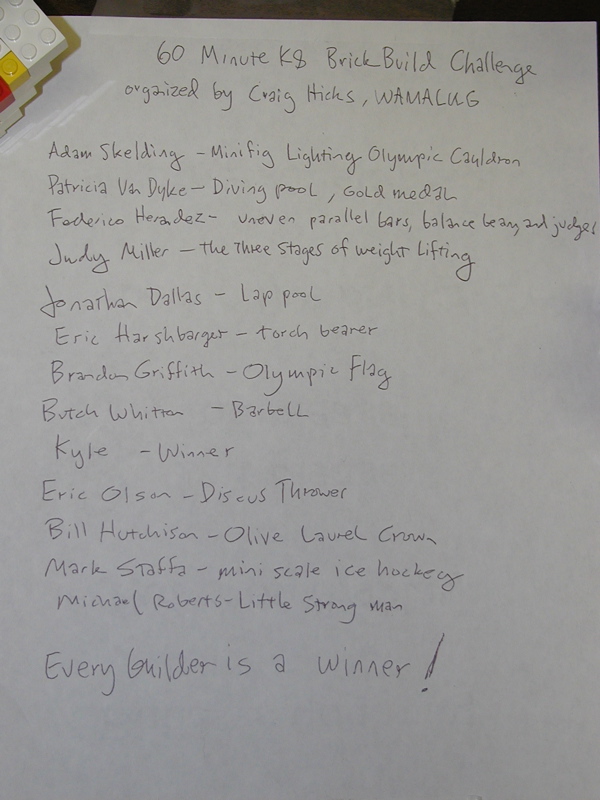 60 Minute K8 Brick Build Challenge
organized by Craig Hicks, WAMALUG
Adam Skelding - Minifig Lighting Olympic Cauldron
Patricia Van Dyke - Diving pool, Gold medal
Federico Herandez - uneven parallel bars, balance beam, and judges
Judy Miller - The Three Stages of weight Lifting
Jonathan Dallas - Lap pool
Eric Harshbarger - torch bearer
Brandon Griffith - Olympic Flag
Butch Whitton - Barbell
Kyle - Winner
Eric Olson - Discus Thrower
Bill Hutchison - Olive Laurel Crown
Mark Staffa - mini scale ice hockey
Michael Roberts - Little Strong man
Every builder is a winner!